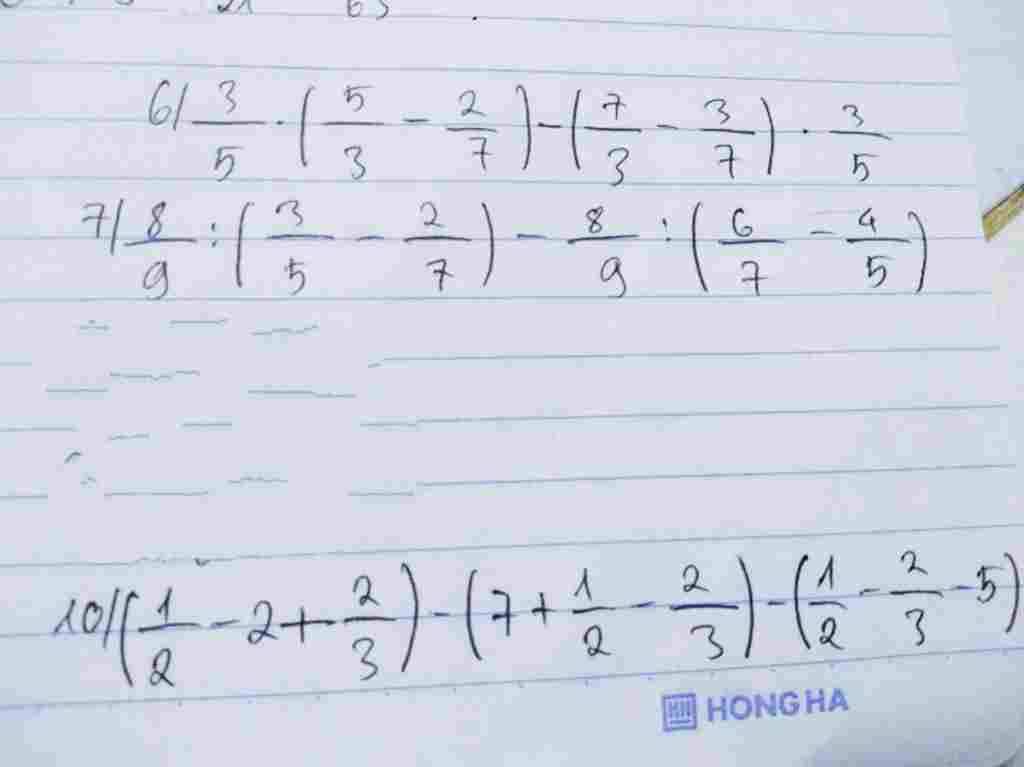 6/ 3/5 . (5/3 - 2/7) - (7/3 - 3/7) . 3/5
7/ 8/9 : (3/5 - 2/7) - 8/9 : (6/7 - 4/5)
10/ (1/2 - 2 + 2/3) - (7 + 1/2 - 2/3) - (1/2 - 2/3 - 5)
HONG HA